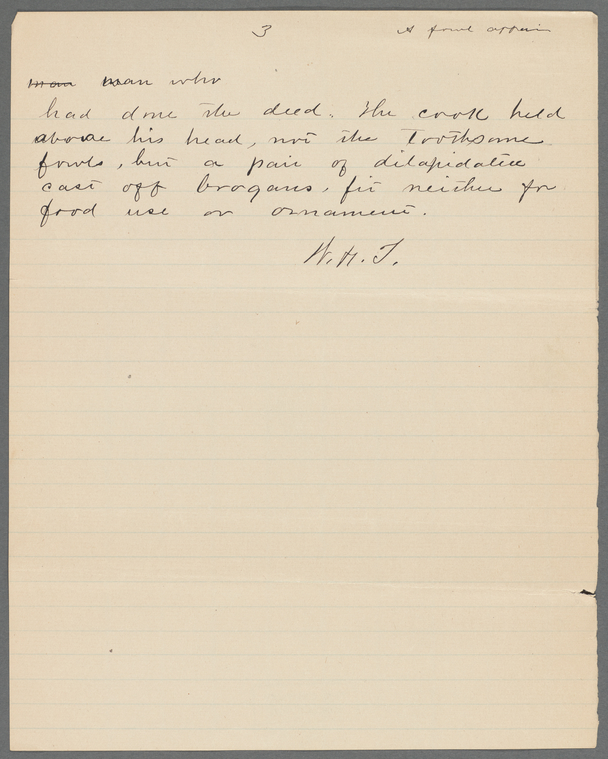 3
A fowl affair
man man who
had done the deed. The cook held
above his head, not the toothsome
fowls, but a pair of dilapidated
cast off brogans, fit neither for
food use or ornament.
W. H. T.